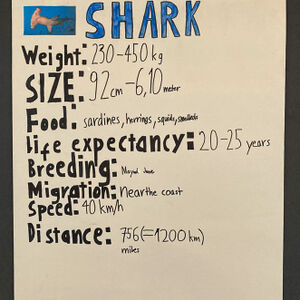 SHARK
Weight: 230-450kg
SIZE: 92cm-6,10 meter
Food: sardines, herrings, squids,
life expectancy: 20-25 years
Breeding: May June
Migration: Near the coast
Speed: 40 km/h
Distance: 756 (=1200 km)
miles